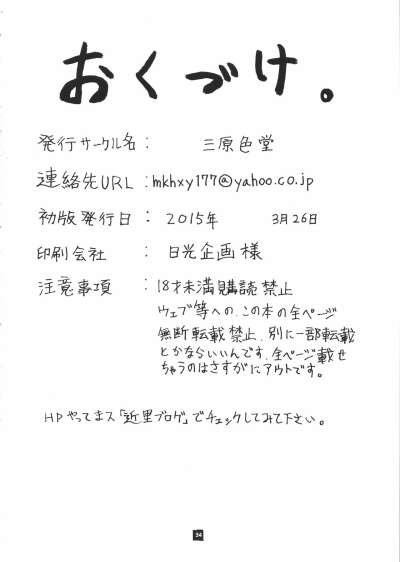 おくづけ。
発行サークル名： 三原色堂
連絡先URL：mkhxy177@yahoo.co.jp
初版発行日： 2015年 3月26日
印刷会社： 日光企画様
注意事項：18才未満購読禁止
ウェブ等への、この本の全ページ
無断転載禁止、別に一部転載
とかならいいんです、全ページ載せ
ちゃうのはさすがにアウトです。
HPやってまス「近里ブログ」でチェックしてみて下さい。
34